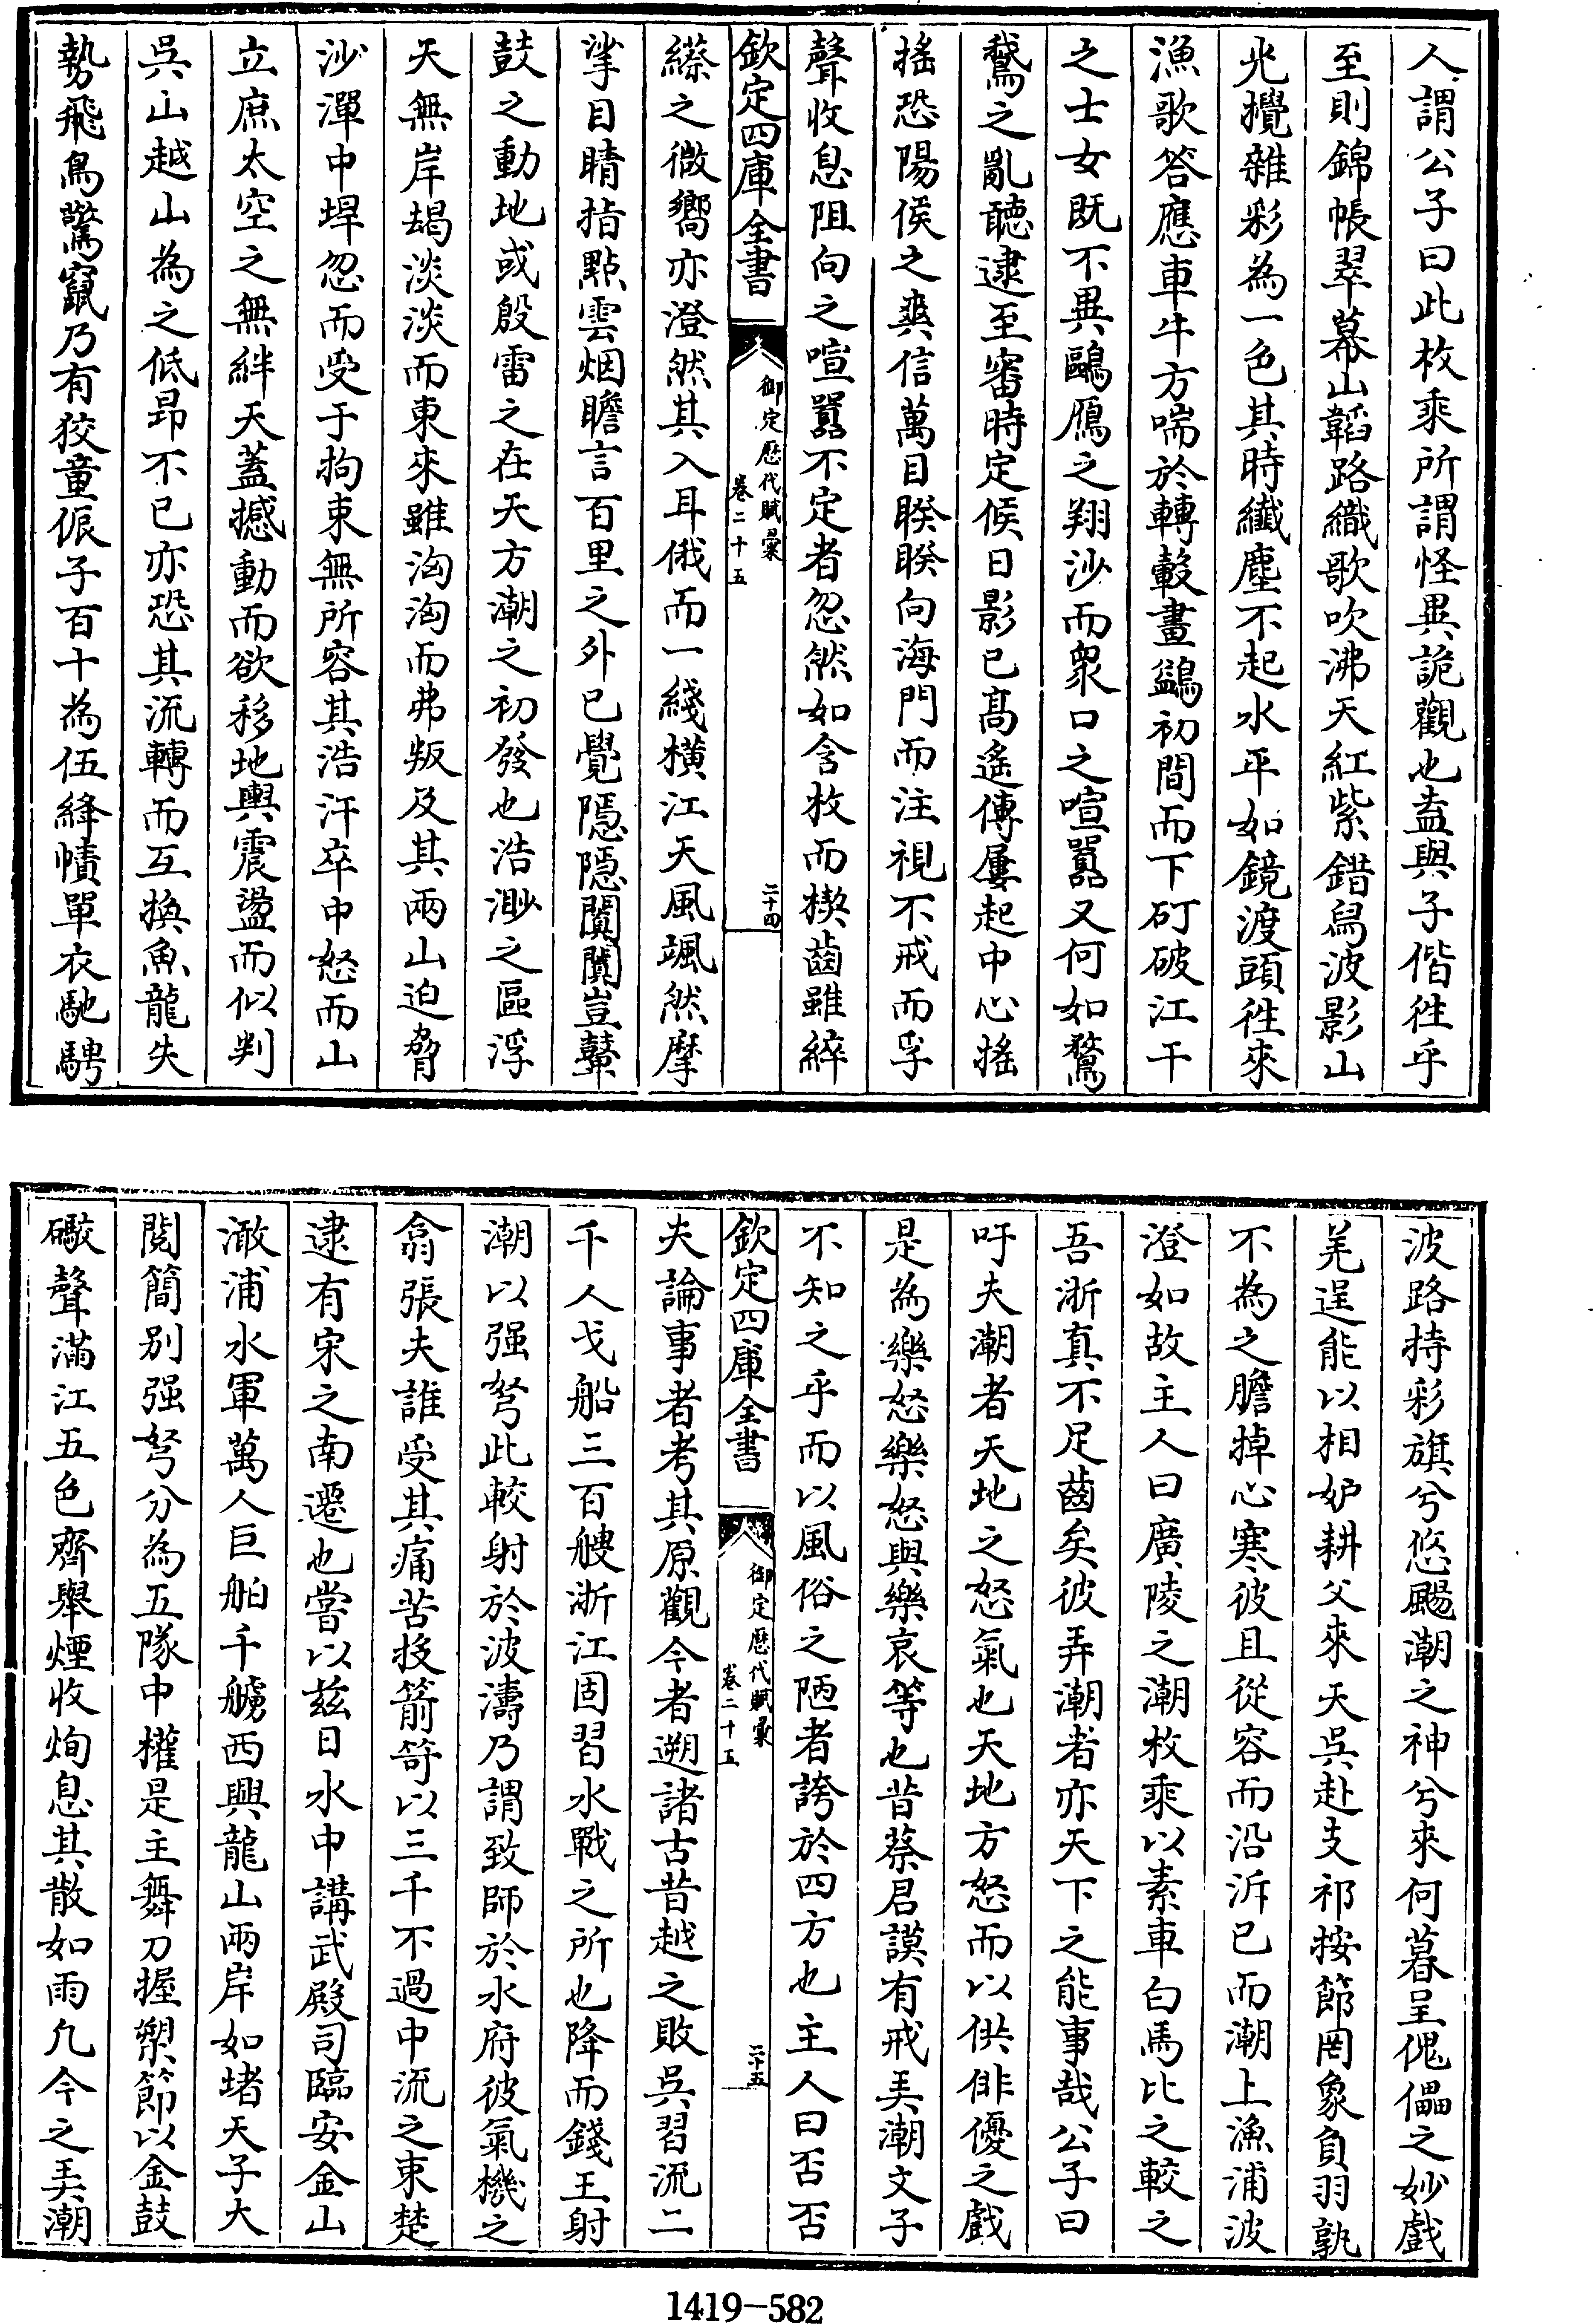 人謂公子曰此枚乘所謂怪異詭觀也盍與子偕徃乎
至則錦帳翠幕山韜路織歌吹沸天紅紫錯舄波影山
光攪雜彩為一色其時纖塵不起水平如鏡渡頭徃來
漁歌答應車牛方喘於轉轂畫鷁初間而下矴破江干
之士女既不異鷗鴈之翔沙而衆口之喧囂又何如鶩
鵞之亂聽逮至審時定候日影已髙遙傳屢起中心搖
搖恐陽侯之爽信萬目睽睽向海門而注視不戒而孚
聲收息阻向之喧囂不定者忽然如含枚而楔齒雖綷
欽定四庫全書
御定歷代賦彙
卷二十五
二十四
縩之微嚮亦澄然其入耳俄而一綫横江天風颯然摩
挲目睛指點雲烟瞻言百里之外已覺隠隠闐闐豈鼙
鼓之動地或殷雷之在天方潮之初發也浩渺之區浮
天無岸朅淡淡而東來雖洶洶而弗叛及其兩山迫脅
沙潬中垾忽而受于拘束無所容其浩汗卒中怒而山
立庶太空之無絆天蓋撼動而欲移地輿震盪而似判
吳山越山為之低昂不已亦恐其流轉而互換魚龍失
勢飛鳥驚竄乃有狡童侲子百十為伍絳幘單衣馳騁
波路持彩旗兮悠颺潮之神兮來何暮呈傀儡之妙戲
羌逞能以相妒耕父來天吳赴支祁按節罔象負羽孰
不為之膽掉心寒彼且從容而沿泝已而潮上漁浦波
澄如故主人曰廣陵之潮枚乘以素車白馬比之較之
吾浙真不足齒矣彼弄潮者亦天下之能事哉公子曰
吁夫潮者天地之怒氣也天地方怒而以供俳優之戲
是為樂怒樂怒與樂哀等也昔蔡君謨有戒弄潮文子
不知之乎而以風俗之陋者誇於四方也主人曰否否
欽定四庫全書
御定歷代賦彙
卷二十五
二十五
夫論事者考其原觀今者遡諸古昔越之敗吳習流二
千人戈船三百艘浙江固習水戰之所也降而錢王射
潮以强弩此較射於波濤乃謂致師於水府彼氣機之
翕張夫誰受其痛苦投箭笴以三千不過中流之東楚
逮有宋之南遷也嘗以兹日水中講武殿司臨安金山
澉浦水軍萬人巨舶千艘西興龍山兩岸如堵天子大
閲簡别强弩分為五隊中權是主舞刀握槊節以金鼓
礮聲滿江五色齊舉煙收炮息其散如雨凢今之弄潮
1419—582